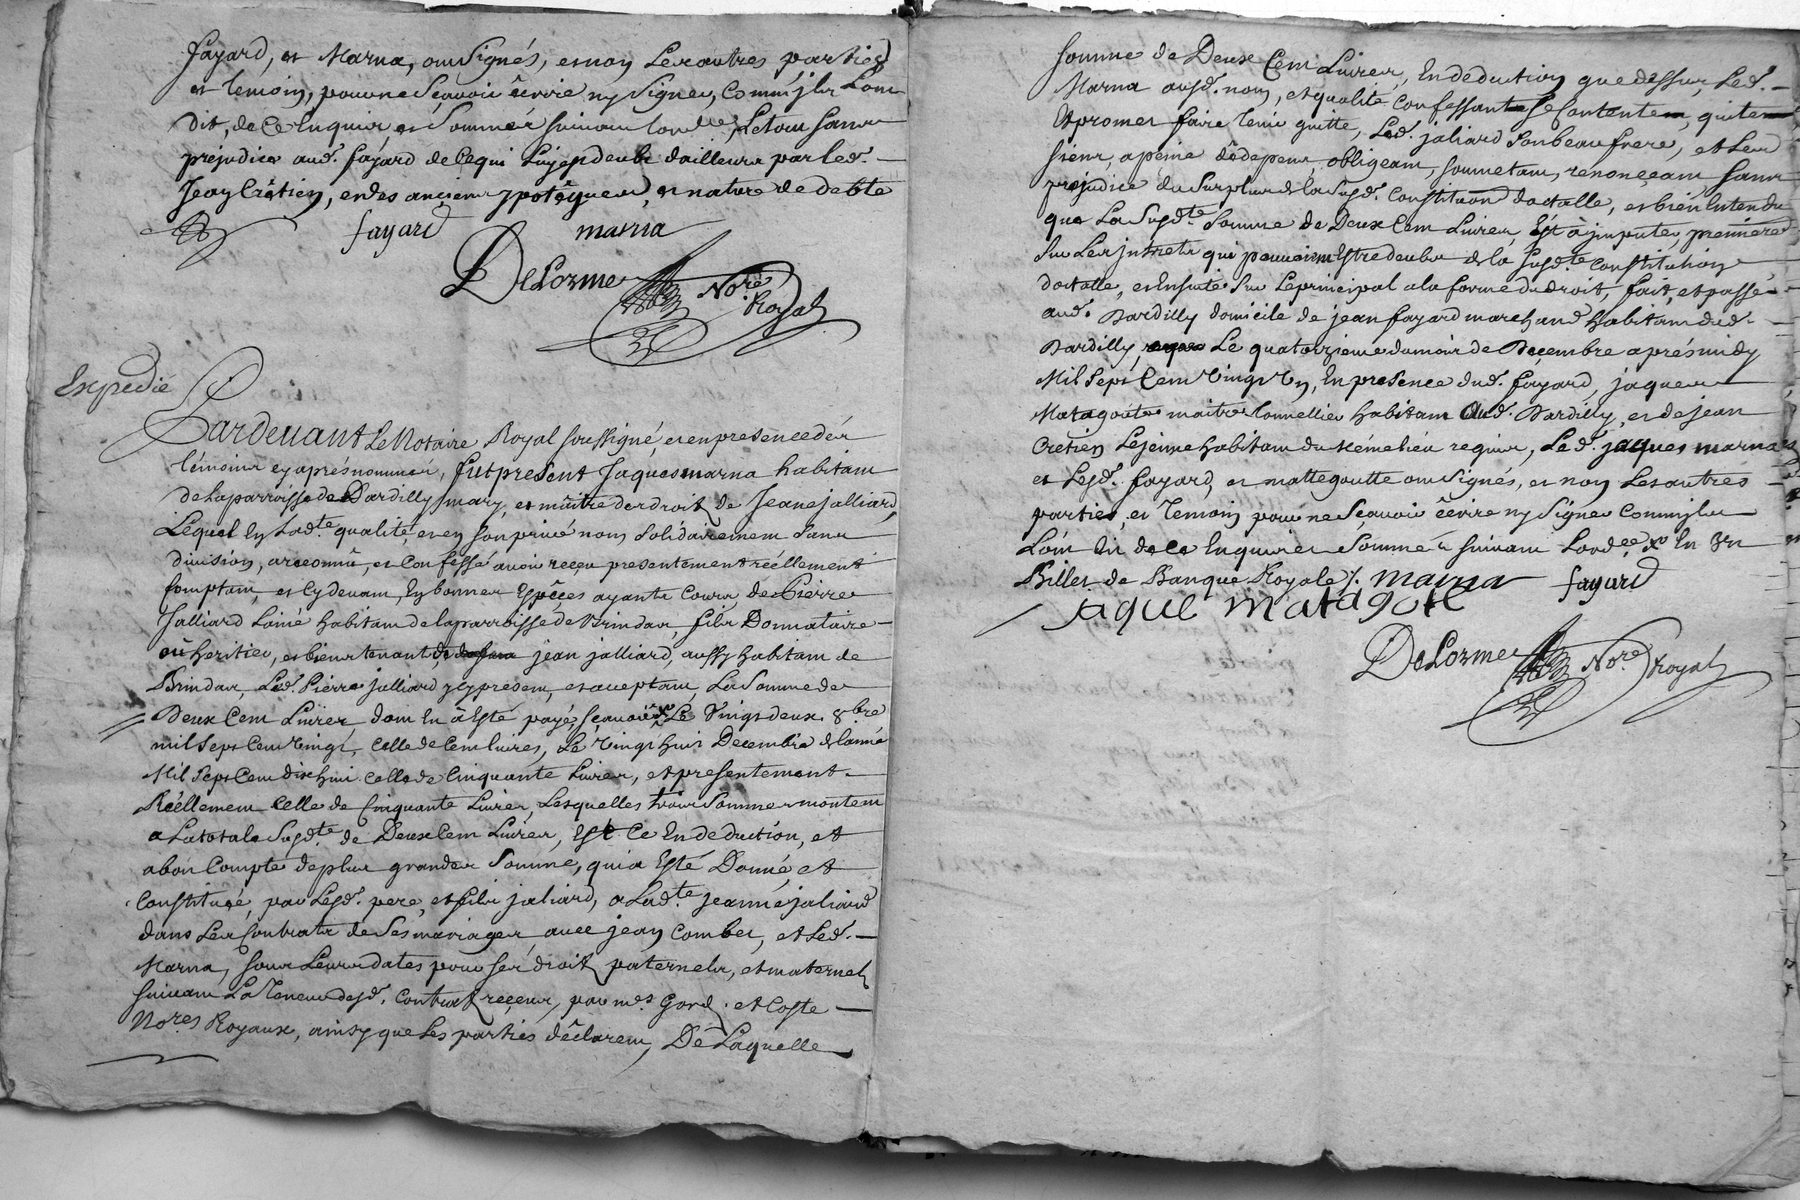 fayard, et Marna, ont signés, et non les autres parties
et temoins, pour ne sçavoir êcrire ny signer, comm'ils l'ont
dit, de ce enquis et sommés suivant l'ord.ce, le tout sans
préjudice aud. fayard de ce qui luy est deub d'ailleurs par led.
Jean Crêtien, en des anciens ypotêques, et nature de debte
fayard marna
DeLorme No.re Royal
Expedié
Pardevant Le Notaire Royal soussigné, et en presence des
témoins cy aprés nommés, fut present Jaques marna habitant
de la parroisse de Dardilly mary, et maître des droits de Jeane jalliard,
Lequel en lad.te qualité, et en son privé nom solidairement sans
division, a reconnû, et confessé avoir reçeu presentement réellement
comptant, et cy devant, en bonnes Espêces ayants cours de Pierre
Jalliard L'ainé habitant de la parroisse de Brindas, fils Donnataire
où heritier, et biens tenant de jean jalliard, aussy habitant de
Brindas, Led. Pierre jalliard icy present, et acceptant, La somme de
Deux Cent Livres, dont en à Esté payé, sçavoir Le vingt deux 8bre
mil sept Cent vingt, celle de Cent livres, Le vingt huit Decembre de l'année
Mil sept Cent dix huit celle de Cinquante Livres, et presentement
Réellement Celle de Cinquante Livres, Lesquelles trois sommes montent
a La totale susd.te de Deux Cent Livres, Est Ce En deduction, et
a bon Compte de plus grandes somme, qui a Esté Donné, et
Constitué, par Lesd. pere, et fils jaliard, a Lad.te jeanne jaliard
dans Les Contrats de ses mariages avec jean Combet, et Led.
Marna, sous Leurs dates pour ses droits paternels, et maternels
suivant La Teneur desd. Contrats reçeus, par m.es Gord. et Coste
No.res Royaux, ainsy que Les parties dêclarent, De Laquelle
somme de Deux Cent Livres, En deduction que dessus, Led.
Marna ausd. nom, et qualité confessant se Contente, quitte
Et promet faire tenir quitte, Led. jaliard son beau frere, et Les
siens, a peine de depens, obligeant, soumetant, renonçeant sans
préjudice du surplus de la susd. Constitution dotalle, et bién Entendu
que La susd.te somme de Deux Cent Livres, Est à imputer, premiere
sur Les intrets qui pouvoient Estre deubs de la susd.te Constitution
dotalle, et Ensuite sur Le principal a la forme du droit, fait, et passé
aud. Dardilly domicile de jean fayard marchand habitant dud.
Dardilly, Le quatorzieme du mois de Decembre aprés midy
Mil sept Cent vingt un, En presence dud. fayard, jaques
Matagoute maitre tonnellier habitant aud. Dardilly, et de jean
Cretien Le jeune habitant du même lieu requis, Led. jaques marna
et Led. fayard, et mattegoutte ont signés, et non Les autres
parties, et temoin pour ne sçavoir êcrire ny signer Comm'ils
L'ont dit de ce Enquis et sommés suivant L'ord.ce x En Un
Billet de Banque Royale /. marna fayard
jaque matagote
DeLorme No.re Royal